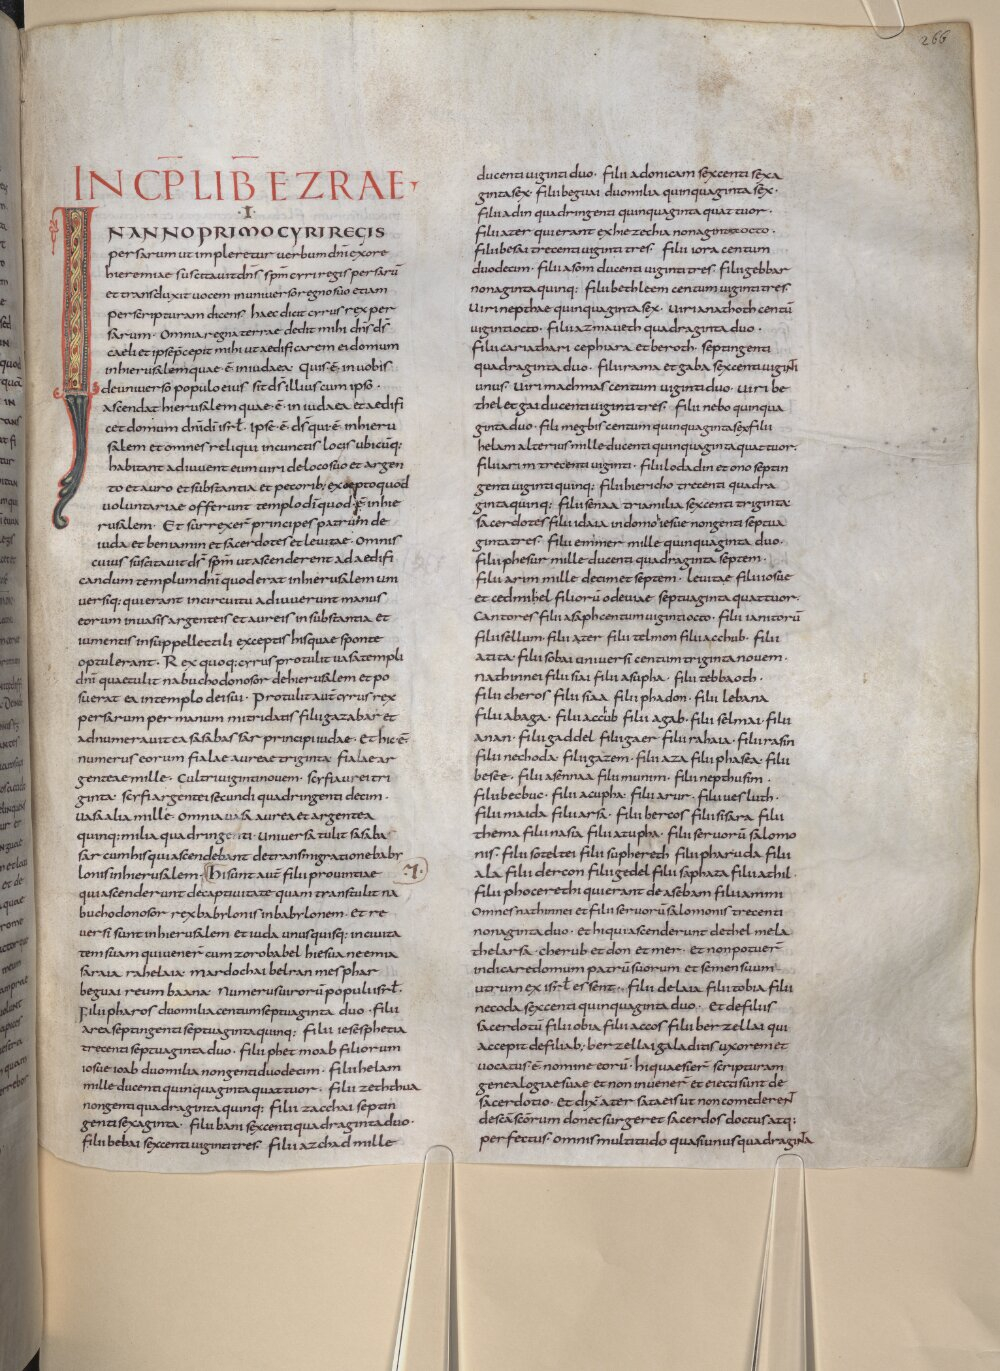 266
INCP̄ LIB̄ EZRAE
·I·
IN ANNO PRIMO CYRI REGIS
persarum ut impleretur uerbum dn̄i ex ore
hieremiae suscitauit dn̄s sp̄m cyri regis persarū
et transduxit uocem in uniuerso regno suo etiam
per scripturam dicens· haec dicit cyrus rex per
sarum· Omnia regna terrae dedit mihi dn̄s ds̄
caeli et ipse p̄cepit mihi ut aedificarem ei domum
in hierusalem quae ē in iudaea· Quis ē in uobis
de uniuerso populo eius sit ds̄ illius cum ipso·
ascendat hierusalem quae ē in iudaea et aedifi
cet domum dn̄i di isrł· ipse ē ds̄ qui ē in hieru
salem et omnes reliqui in cunctis locis ubicūq;
habitant adiuuent eum uiri de loco suo et argen
to et auro et substantia et pecorib; excepto quod
uoluntariae offerunt templo dī quod ē in hie
rusalem· Et surrexer̄ principes patrum de
iuda et beniamin et sacerdotes et leuitae· Omnis
cuius suscitauit ds̄ sp̄m ut ascenderent ad aedifi
candum templum dn̄i quod erat in hierusalem um
uersiq; qui erant in circuitu adiuuerunt manus
eorum in uasis argenteis et aureis in substantia et
iumentis in suppellectili exceptis his quae sponte
optulerant· Rex quoq; cyrus protulit uasa templi
dn̄i quae tulit nabuchodonosor de hierusalem et po
suerat ea in templo dei sui· Protulit aut̄ cyrus rex
persarum per manum mitridatis filii gazabar et
adnumerauit ea sasabassar principi iudae· Et hic ē
numerus eorum fialae aureae triginta fialae ar
genteae mille· Cultri uiginti nouem· scyfi aurei tri
ginta scyfi argentei secundi quadringenti decim·
uasa alia mille· Omnia uasa aurea et argentea
quinq; milia quadringenti· uniuersa tulit sasaba
sar cum his qui ascendebant de transmigratione baby
lonis in hierusalem· Hi sunt aut̄ filii prouintiae
qui ascenderunt de captiuitate quam transtulit na
buchodonosor rex babylonis in babylonem· et re
uersi sunt in hierusalem et iuda unusquisq; in ciuita
tem suam qui uener̄ cum zorobabel hiesua neemia
saraia rahelaia· mardochai belsan mesphar
beguai reum baana· numerus uirorū populi isrł·
Filii pharos duomilia centum septuaginta duo· filii
area septingenti septuaginta quinq; filii iesesphetia
trecenti septuaginta duo· filii phet moab filiorum
iosue ioab duomilia nongenti duodecim· filii helam
mille ducenti quinquaginta quattuor· filii zeththua
nongenti quadraginta quinq; filii zacchai septin
genti sexaginta· filii bani sexcenti quadraginta duo·
filii bebai sexcenti uiginti tres· filii azchad mille
ducenti uiginti duo· filii adonicam sexcenti sexa
ginta sex· filii beguai duomilia quinquaginta sex·
filii adin quadringenti quinquaginta quattuor·
filii ater qui erant ex hiezechia nonaginta octo·
filii besai trecenti uiginti tres· filii iora centum
duodecim· filii asom ducenti uiginti tres· filii gebbar
nonaginta quinq; filii bethleem centum uiginti tres·
uiri nepthae quinquaginta sex· uiri anathoth centū
uiginti octo· filii azmaueth quadraginta duo·
filii cariathari cephiara et beroth· septingenti
quadraginta duo· filii rama et gaba sexcenti uiginti
unus· uiri madmas centum uiginti duo· uiri be
thel et gai ducenti uiginti tres· filii nebo quinqua
ginta duo· filii megbis centum quinquaginta sex filii
helam alterius mille ducenti quinquaginta quattuor·
filii arim trecenti uiginti· filii lod adin et ono septin
genti uiginti quinq; filii hiericho trecenti quadra
ginta quinq; filii senaa tria milia sexcenti triginta·
Sacerdotes filii idaia in domo iesue nongenti septua
ginta tres· filii emmer mille quinquaginta duo·
filii phesur mille ducenti quadraginta septem·
filii arim mille decim et septem· leuitae filii iosue
et cedmihel filiorū odeuiae septuaginta quattuor·
Cantores filii asaph centum uiginti octo· filii ianitorū
filii sellum· filii ater filii telmon filii acchub· filii
atita· filii sobai uniuersi centum triginta nouem·
nathinnei filii siai filii asupha· filii tebbaoth·
filii cheros filii siaa filii phadon· filii lebana
filii abaga· filii accub filii agab· filii selmai· filii
anan· filii gaddel filii gaer filii rahaia· filii rasin
filii nechoda filii gazem· filii aza filii phasea· filii
besee· filii asennaa filii munim· filii nepthusim·
filii becbuc· filii acupha· filii arur· filii uesluth·
filii maida filii arsa· filii bercos filii sisara filii
thema filii nasia filii atupha· filii seruorū salomo
nis· filii soteltei filii suphereth filii pharuda filii
ala filii dercon filii gedel filii saphata filii athil·
filii phocerethi qui erant de asebam filii ammi
Omnes nathinnei et filii seruorū salomonis trecenti
nonaginta duo· et hi qui ascenderunt de thel mela
thelarsa· cherub et don et mer· et non potuer̄
indicare domum patrū suorum et semen suum
utrum ex isrł essent· filii delaia filii tobia filii
necoda sexcenti quinquaginta duo· Et de filiis
sacerdotū filii obia filii accos filii berzellai qui
accepit de filiab; berzellai galaditis uxorem et
uocatus ē nomine eorū· hi quaesier̄ scripturam
genealogiae suae et non inuener̄ et eiecti sunt de
sacerdotio· Et dix̄ atersataeis ut non comederent
de sc̄a sc̄orum donec surgeret sacerdos doctus atq;
perfectus· omnis multitudo quasi unus quadraginta